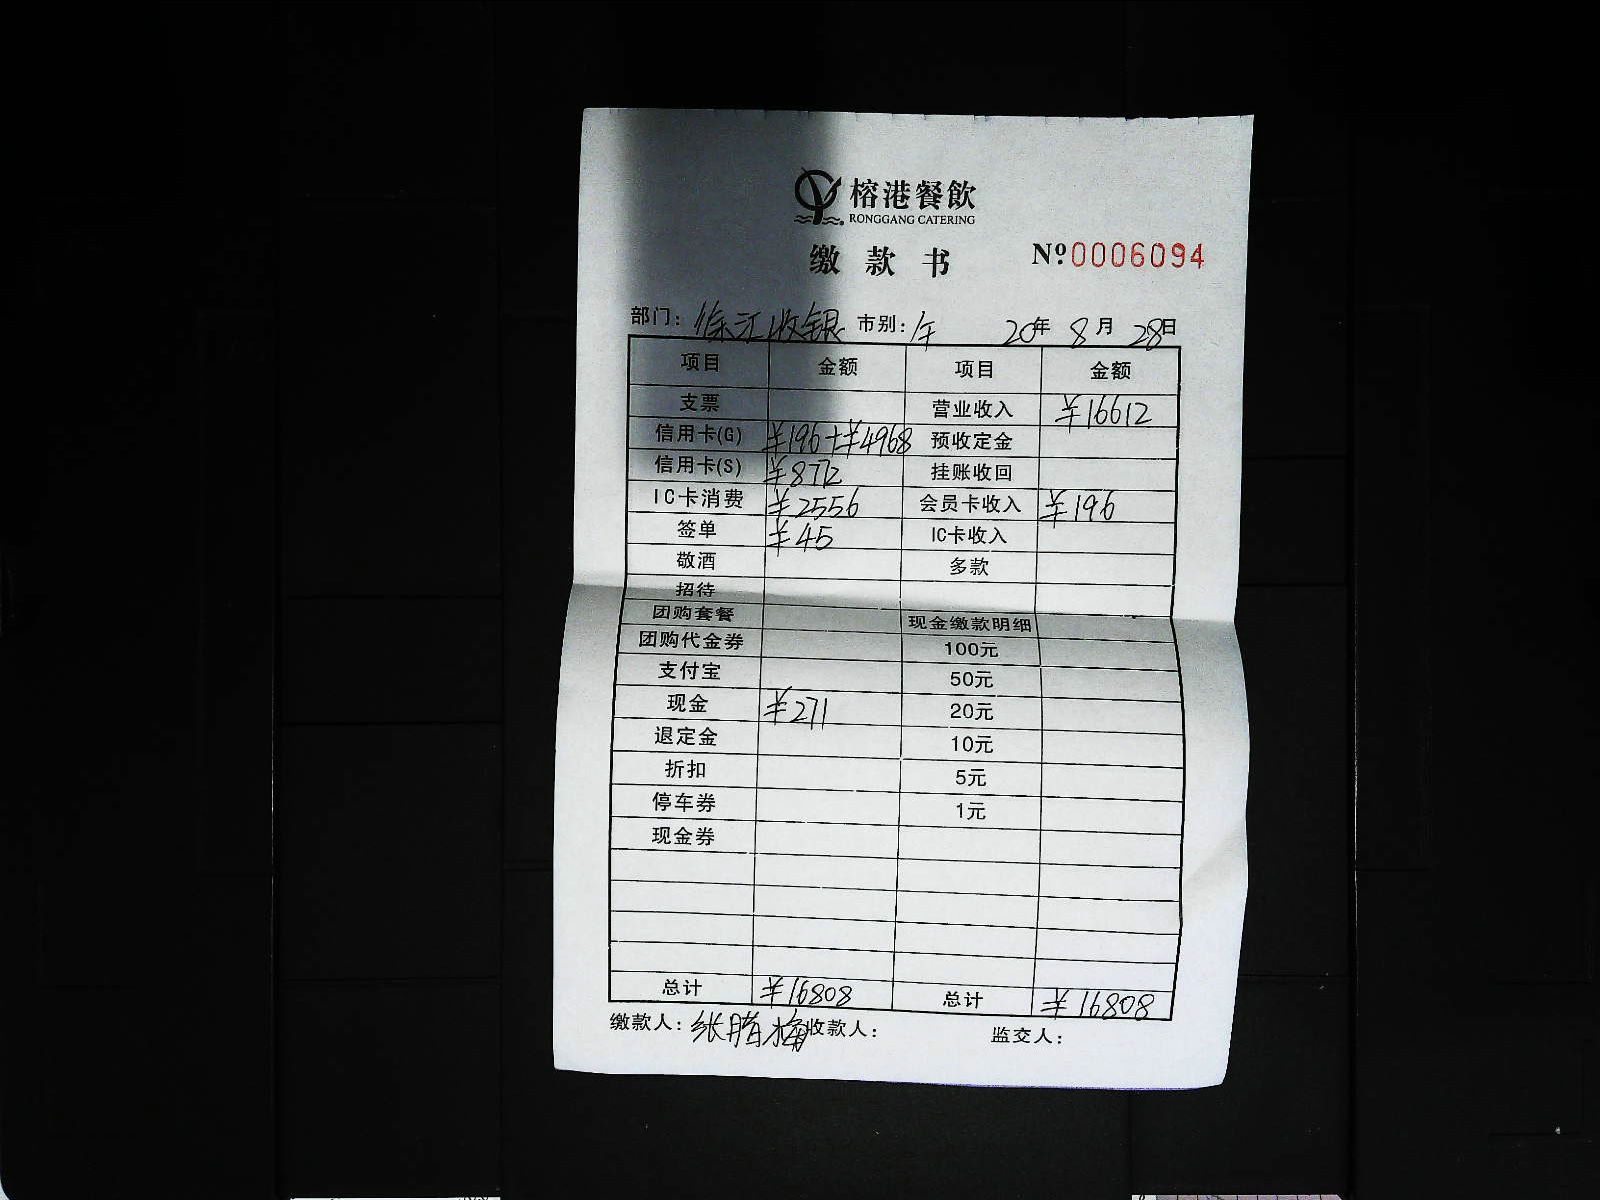 榕港餐飲
RONGGANG CATERING
缴款书 Nº0006094
部门：徐汇收银 市别：午 20年8月28日
项目 金额 项目 金额
支票 营业收入 ¥16612
信用卡(G) ¥196+¥4968 预收定金
信用卡(S) ¥8772 挂账收回
IC卡消费 ¥2556 会员卡收入 ¥196
签单 ¥45 IC卡收入
敬酒 多款
招待
团购套餐 现金缴款明细
团购代金券 100元
支付宝 50元
现金 ¥271 20元
退定金 10元
折扣 5元
停车券 1元
现金券
总计 ¥16808 总计 ¥16808
缴款人：张 梅 收款人： 监交人：